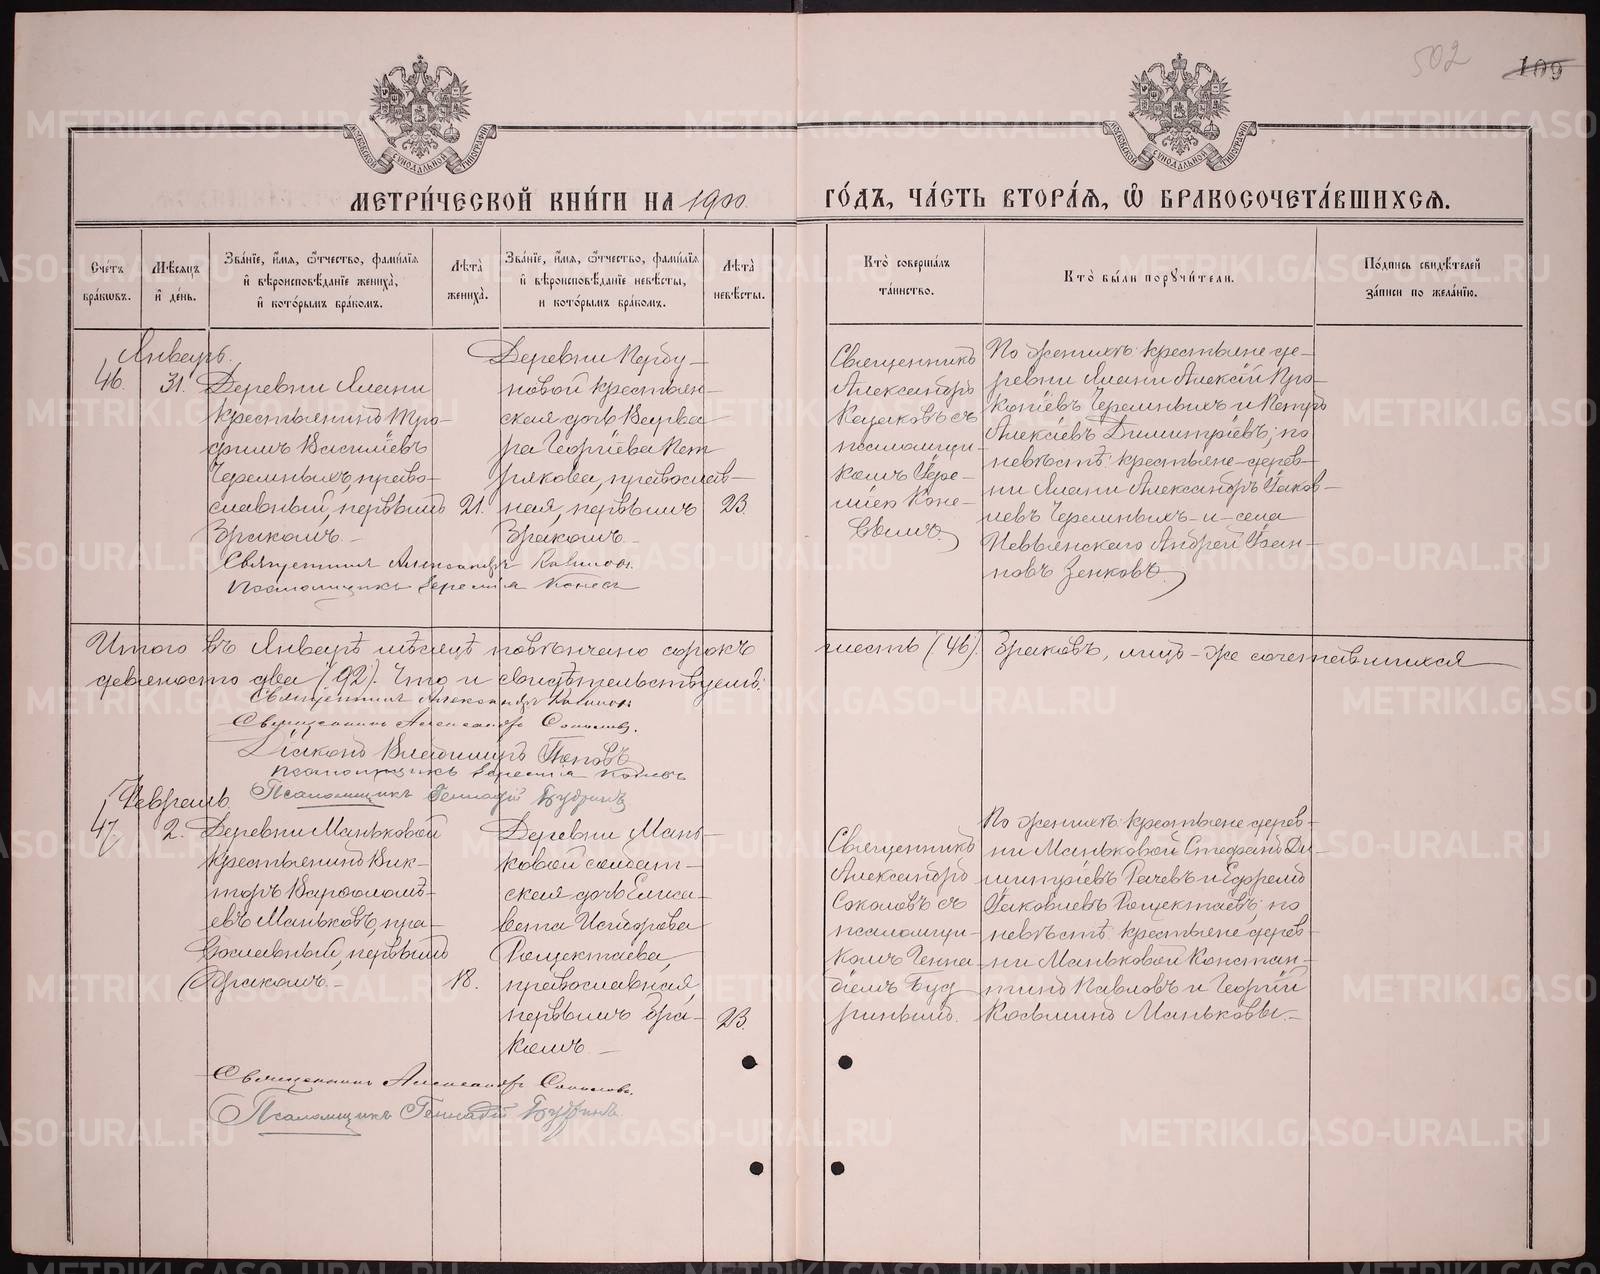 502
109
МОСКОВСКОЙ СѴНОДАЛЬНОЙ ТИПОГРАФІИ
МОСКОВСКОЙ СѴНОДАЛЬНОЙ ТИПОГРАФІИ
МЕТРИ́ЧЕСКОЙ КНИ́ГИ НА 1900
ГО́ДЪ, ЧА́СТЬ ВТОРА́Я, Ѿ БРАКОСОЧЕТА́ВШИХСЯ.
Сче́тъ бра́кѡвъ.
Мѣ́сяцъ и҆ де́нь.
Зва́нїе, и҆́мѧ, ѻ҆́тчество, фами́лїѧ и҆ вѣроисповѣ́данїе жениха̀, и҆ кото́рымъ бра́комъ.
Лѣ́та жениха̀.
Зва́нїе, и҆́мѧ, ѻ҆́тчество, фами́лїѧ и҆ вѣроисповѣ́данїе невѣ́сты, и҆ кото́рымъ бра́комъ.
Лѣ́та невѣ́сты.
Кто̀ соверша́лъ та́инство.
Кто̀ бы́ли порꙋчи́тели.
По́дпись свидѣ́телей за́писи по жела́нїю.
Январь.
46.
31.
Деревни Ялани
крестьянинъ Тро-
фимъ Василіевъ
Черемныхъ, право-
славный, первымъ
бракомъ.
21.
Деревни
новой крестьян-
ская дочь Варва-
ра Георгіева Пет
рякова, православ-
ная, первымъ
бракомъ.
23.
Священникъ
Александръ
съ
псаломщи-
комъ Іере-
міею Коне-
вымъ.
По женихѣ: крестьяне де-
ревни Ялани Алексій Про-
копіевъ Черемныхъ и Петръ
Алексіевъ Димитріевъ; по
невѣстѣ: крестьяне дерев-
ни Ялани Александръ Іаков-
левъ Черемныхъ и села
Невьянскаго Андрей Іоан-
новъ Зенковъ.
Священникъ Александръ
Псаломщикъ Іеремія Коневъ
Итого въ Январѣ мѣсяцѣ повѣнчано сорокъ
шесть (46) браковъ, лицъ-же сочетавшихся
девяносто два (92). Что и свидѣтельствуемъ:
Священникъ Александръ
Священникъ Александръ Соколовъ.
Діаконъ Владимиръ Поповъ
Псаломщикъ Іеремія Коневъ
Псаломщикъ Геннадій Будринъ
Февраль.
47.
2.
Деревни Маньковой
крестьянинъ Вик-
торъ Варѳоломѣ-
евъ Маньковъ, пра-
вославный, первымъ
бракомъ.
18.
Деревни Мань-
ковой солдат-
ская дочь Елиса-
вета Исидорова
Рощектаева,
православная,
первымъ бра-
комъ
23.
Священникъ
Александръ
Соколовъ съ
псаломщи-
комъ Генна-
діемъ Буд
ринымъ.
По женихѣ: крестьяне дерев-
ни Маньковой Стефанъ Ди-
митріевъ Рачевъ и Ефремъ
Іаковлевъ Рощектаевъ; по
невѣстѣ: крестьяне дерев-
ни Маньковой Констан-
тинъ Павловъ и Георгій
Косьминъ Маньковы.
Священникъ Александръ Соколовъ.
Псаломщикъ Геннадій Будринъ
METRIKI.GASO-URAL.RU